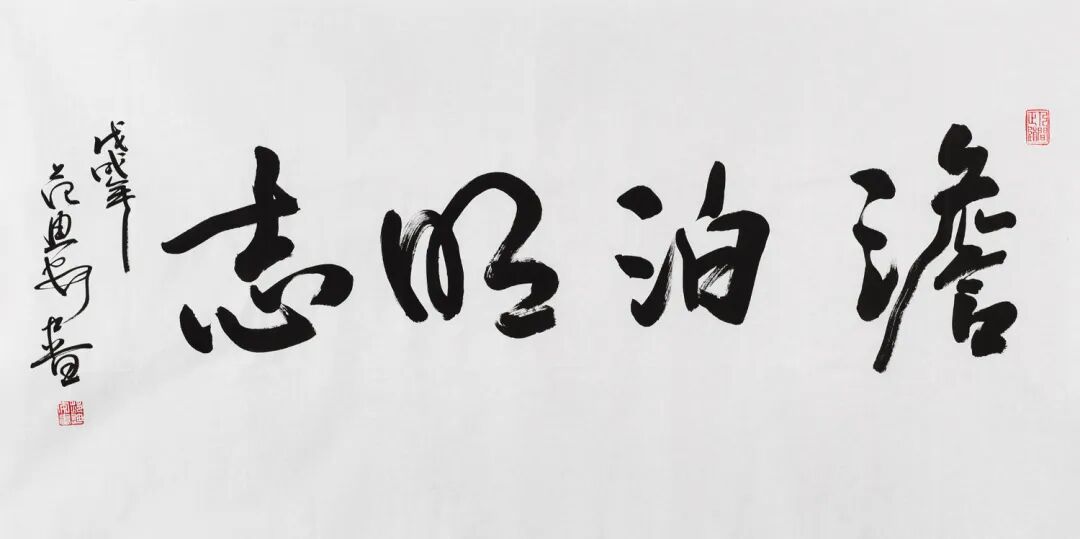 澹泊明志
戊戌年
范迪安書